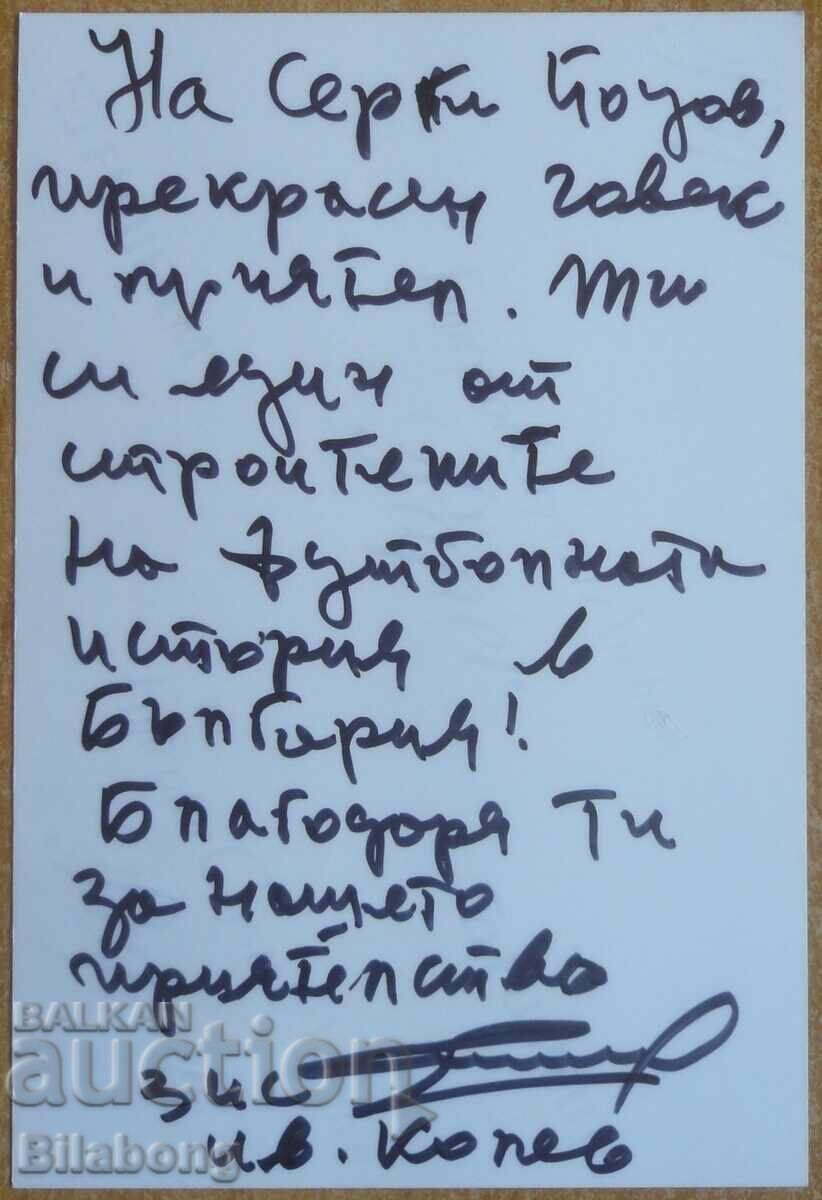 На Серги Йоцов,
прекрасен човек
и приятел. Ти
си един от
строителите
на футболната
история в
България!
Благодаря Ти
за нашето
приятелство
BALKAN
auction
зис
Ив. Колев
Bilabong